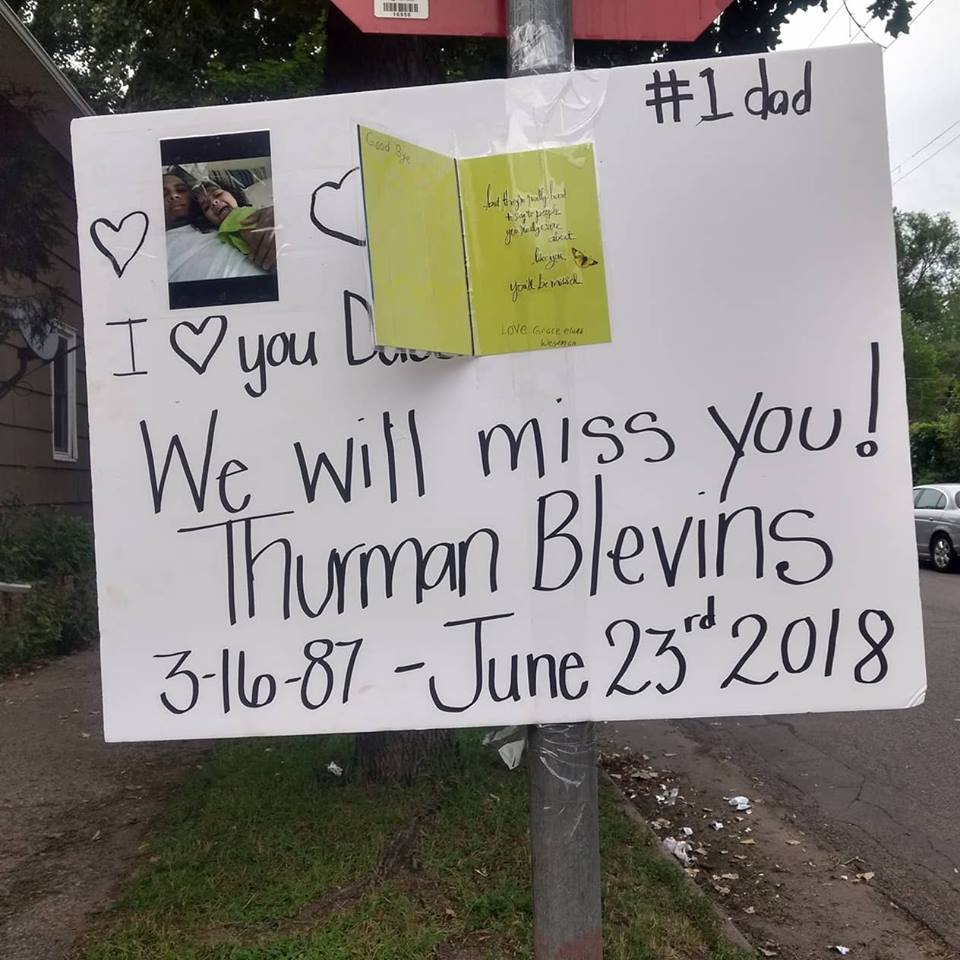 #1 dad
Good Bye
...but they're really hard
to say to people
you really care
about
like you.
you'll be missed.
Love, Grace
I ♡ you
We will miss you!
Thurman Blevins
3-16-87 - June 23rd 2018